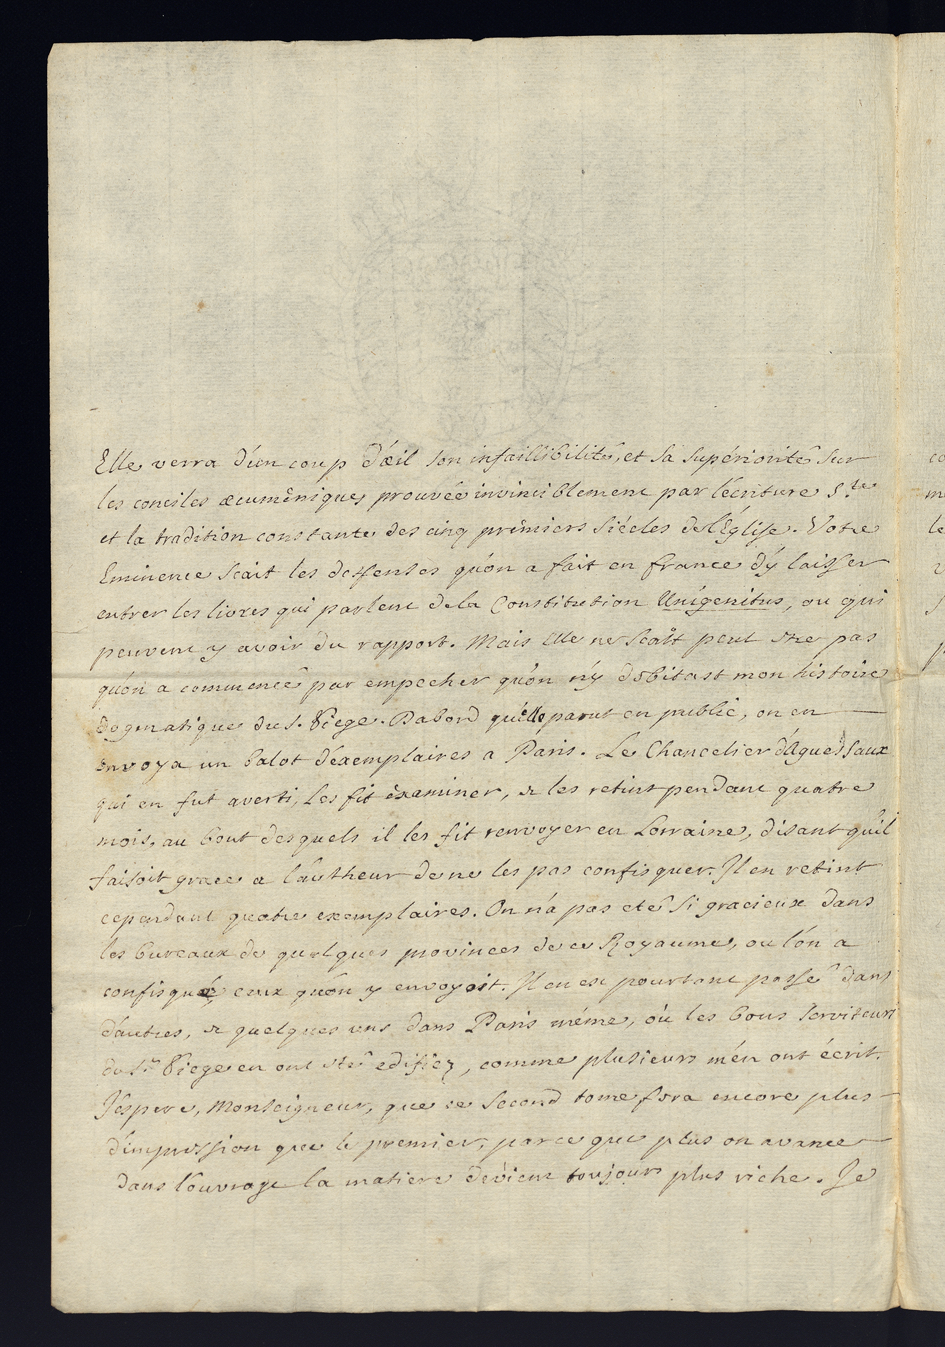 Elle verra d'un coup d'œil son infaillibilité, et sa supériorité sur
les conciles œcuméniques prouvée invinciblement par l'écriture s.te
et la tradition constante des cinq prémiers siécles de l'Église. Votre
Eminence scait les deffenses qu'on a fait en france d'y laisser
entrer les livres qui parlent de la Constitution Unigenitus, ou qui
peuvent y avoir du rapport. Mais elle ne scaît peut etre pas
qu'on a commencé par empecher qu'on n'y debitast mon histoire
dogmatique du S. Siege. D'abord qu'elle parut en public, on en
envoya un balot d'éxemplaires a Paris. Le Chancelier d'Aguessaux
qui en fut averti, les fit éxaminer, & les retint pendant quatre
mois, au bout desquels il les fit renvoyer en Lorraine, disant qu'il
faisoit grace a l'autheur de ne les pas confisquer. Il en retint
cependant quatre exemplaires. On n'a pas eté si gracieux dans
les bureaux de quelques provinces de ce Royaume, ou l'on a
confisqué ceux qu'on y envoyoit. Il en est pourtant passé dans
d'autres, & quelques uns dans Paris méme, où les bons serviteurs
du St. Siege en ont eté edifiez, comme plusieurs m'en ont écrit.
J'espere, Monseigneur, que ce second tome fera encore plus
d'impression que le premier, parce que plus on avance
dans l'ouvrage la matiere dévient toujours plus riche. Je